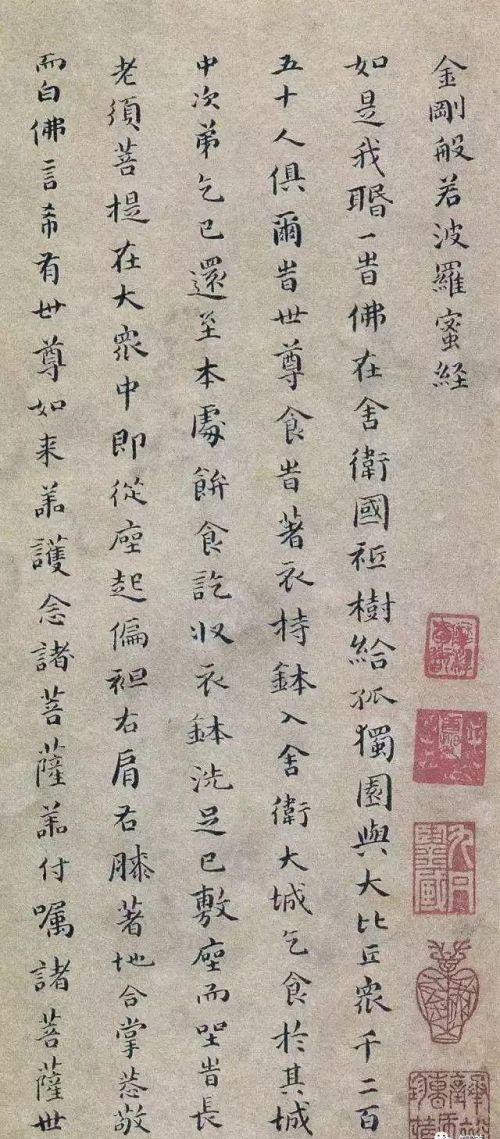 金剛般若波羅蜜経
如是我聞一旹佛在舍衛國祇樹給孤獨園與大比丘衆千二百
五十人俱爾旹世尊食旹著衣持鉢入舍衛大城乞食於其城
中次苐乞已還至本處飰食訖収衣鉢洗足已敷座而坐旹長
老須菩提在大衆中即從座起偏袒右肩右膝著地合掌恭敬
而白佛言希有世尊如来善護念諸菩薩善付嘱諸菩薩世